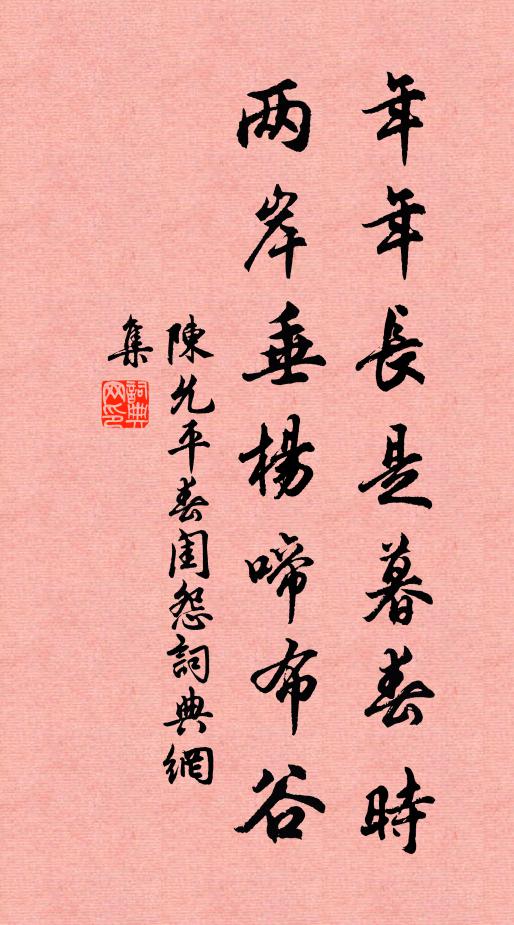 年年長是暮春時
两岸垂楊啼布谷
陳允平春闺怨詞典網
集
詞典网印